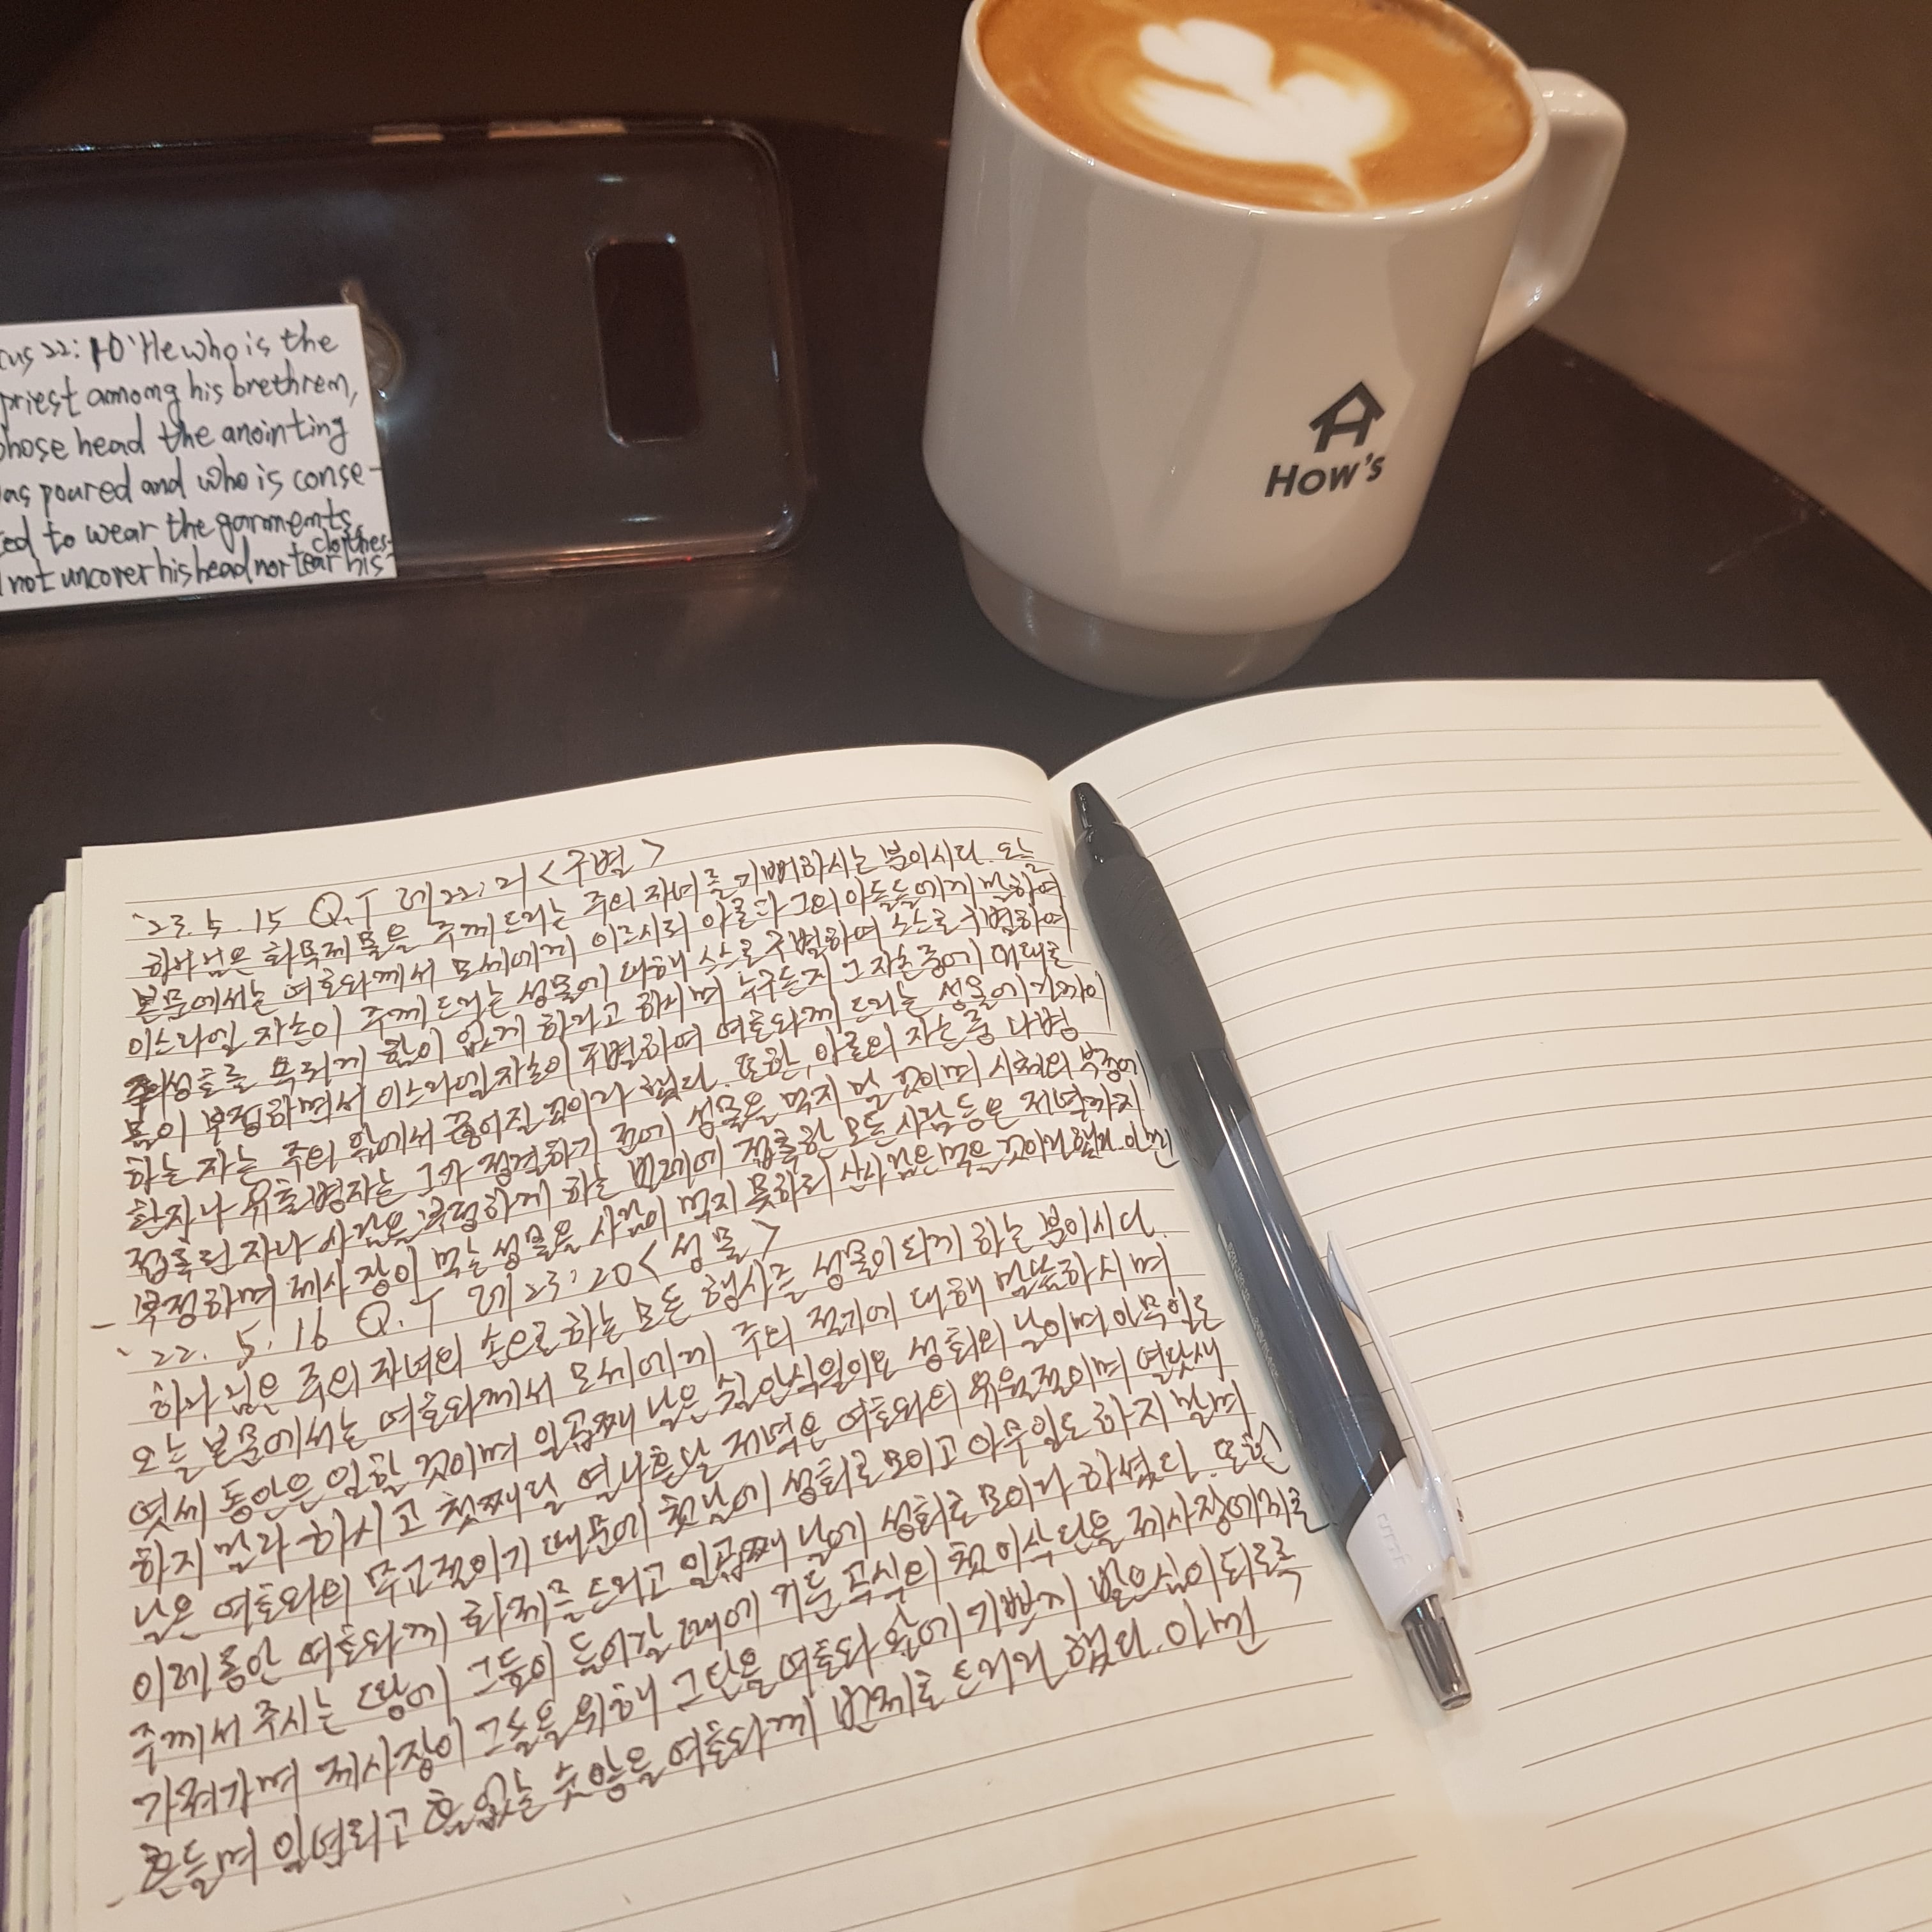 cus 22:10 'He who is the
priest among his brethren,
whose head the anointing
was poured and who is conse-
ed to wear the garments,
not uncover his head nor tear his clothes
How's
'23. 5. 15 Q.T 레22:2 <구별>
하나님은 화목제물을 주께 드리는 주의 자녀를 기뻐하시는 분이시다. 오늘
본문에서는 여호와께서 모세에게 이르시되 아론과 그의 아들들에게 말하여
이스라엘 자손이 주께 드리는 성물에 대해 스스로 구별하여 스스로 구별하여
주의 성호를 욕되게 함이 없게 하라고 하시며 누구든지 그 자손 중에 대대로
몸이 부정하면서 이스라엘 자손이 구별하여 여호와께 드리는 성물에 가까이
하는 자는 주의 앞에서 끊어질 것이라 했다. 또한, 아론의 자손 중 나병
환자나 유출병자는 그가 정결하기 전에 성물을 먹지 말 것이며 시체의 부정에
접촉된 자나 사람을 부정하게 하는 벌레에 접촉한 모든 사람 등은 저녁까지
부정하며 제사장이 먹는 성물을 사람이 먹지 못하되 산 사람은 먹을 것이라 했다. 아멘
'22. 5. 16 Q.T 레23:20 <성물>
하나님은 주의 자녀의 손으로 하는 모든 행사를 성물이 되게 하는 분이시다.
오늘 본문에서는 여호와께서 모세에게 주의 절기에 대해 말씀하시며
엿새 동안은 일할 것이며 일곱째 날은 쉴 안식일이요 성회의 날이며 아무일도
하지 말라 하시고 첫째 달 열나흗날 저녁은 여호와의 유월절이며 열닷새
날은 여호와의 무교절이기 때문에 첫날에 성회로 모이고 아무일도 하지 말며
이레 동안 여호와께 화제를 드리고 일곱째 날에 성회로 모이라 하셨다. 또한
주께서 주시는 땅에 그들이 들어갈 때에 거둔 곡식의 첫 이삭 단을 제사장에게로
가져가며 제사장이 그들을 위해 그 단을 여호와 앞에 기쁘게 받으심이 되도록
흔들며 일년되고 흠 없는 숫양을 여호와께 번제로 드리라 했다. 아멘